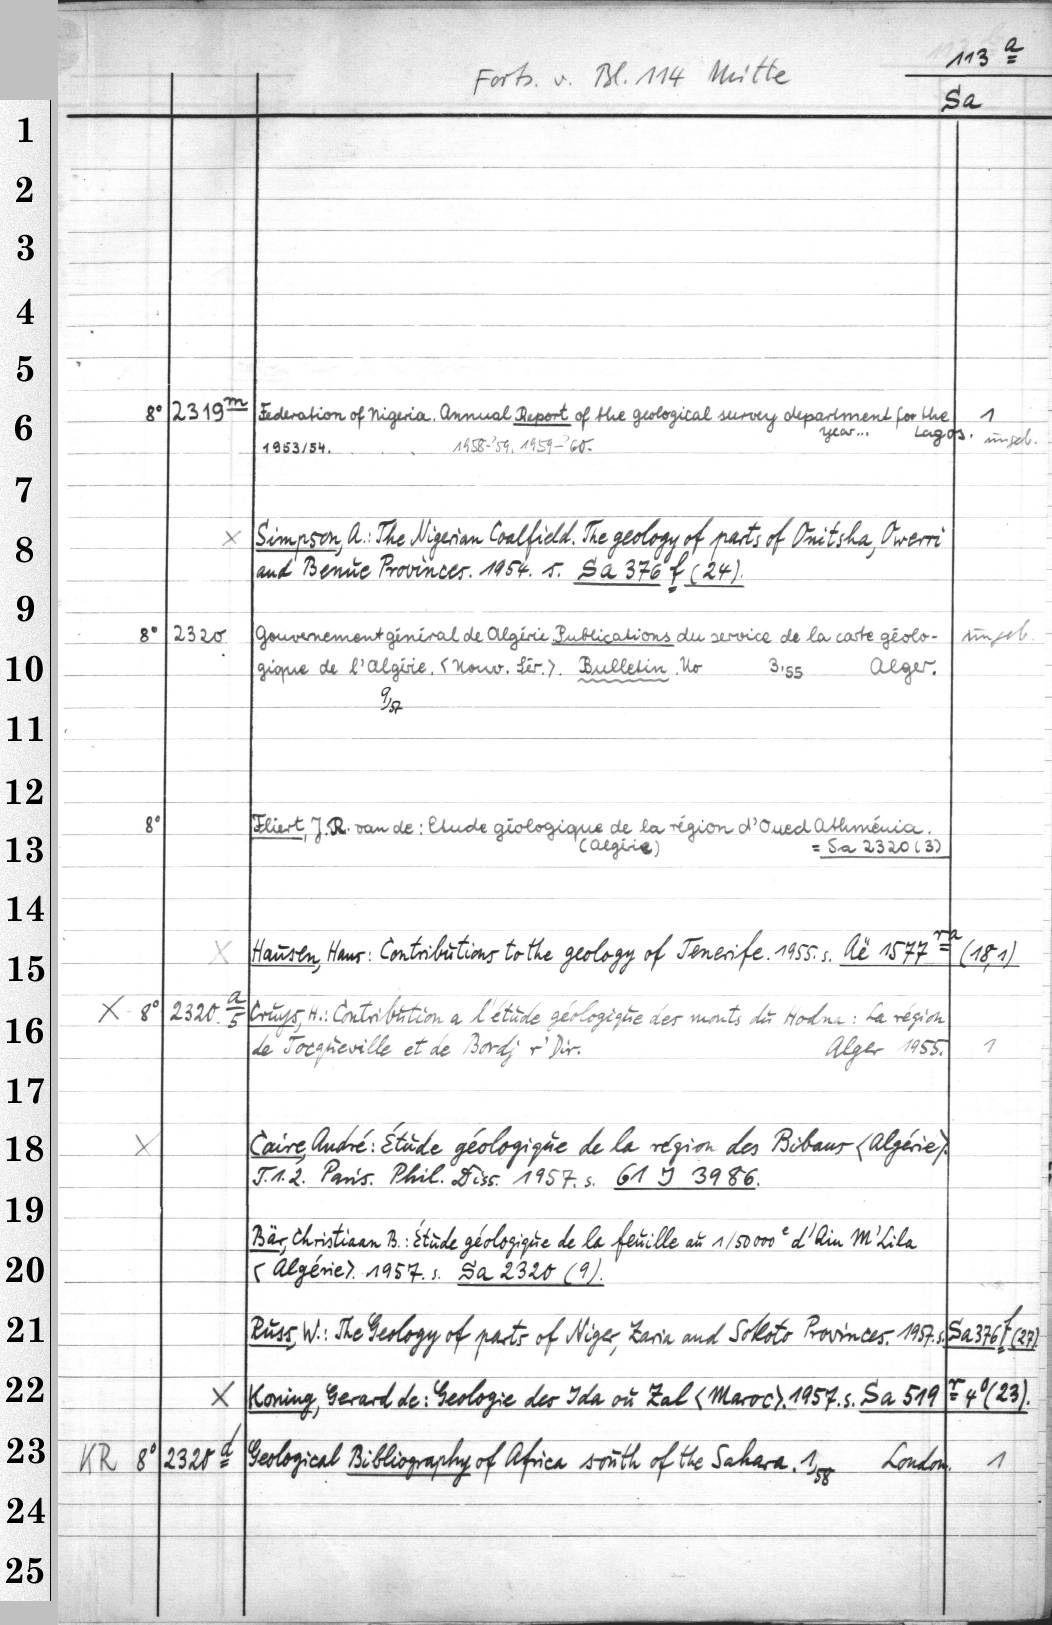 113 a
Forts. v. Bl. 114 Mitte
Sa
1
2
3
4
5
6
7
8
9
10
11
12
13
14
15
16
17
18
19
20
21
22
23
24
25
8° 2319 m Federation of Nigeria. Annual Report of the geological survey department for the 1
year... Lagos. ungeb.
1953/54. 1958-'59. 1959-'60.
x Simpson, A.: The Nigerian Coalfield. The geology of parts of Onitsha, Owerri
and Benue Provinces. 1954. s. Sa 376 f (24).
8° 2320 Gouvernement général de Algérie Publications du service de la carte géolo- ungeb.
gique de l'Algérie. <Nouv. Sér.>. Bulletin. No 3,55 Alger.
9/57
8° Fliert, J. R. van de: Etude géologique de la région d'Oued Athménia.
(Algérie) = Sa 2320 (3)
x Hausen, Hans: Contributions to the geology of Tenerife. 1955. s. Aë 1577 ra (18,1)
x 8° 2320 a/5 Cruys, H.: Contribution a l'étude géologique des monts du Hodna: La région
de Tocqueville et de Bordj r'Dir. Alger 1955. 1
x Caire, André: Étude géologique de la région des Bibans <Algérie>.
T.1.2. Paris. Phil. Diss. 1957. s. 61 J 3986.
Bär, Christiaan B.: Étude géologique de la feuille au 1/50000e d'Ain M'Lila
<Algérie>. 1957. s. Sa 2320 (9).
Russ, W.: The Geology of parts of Niger, Zaria and Sokoto Provinces. 1957. s. Sa 376 f (27)
x Koning, Gerard de: Geologie des Ida ou Zal <Maroc>. 1957. s. Sa 519 r 4° (23).
KR 8° 2320 d Geological Bibliography of Africa south of the Sahara. 1,58 London. 1